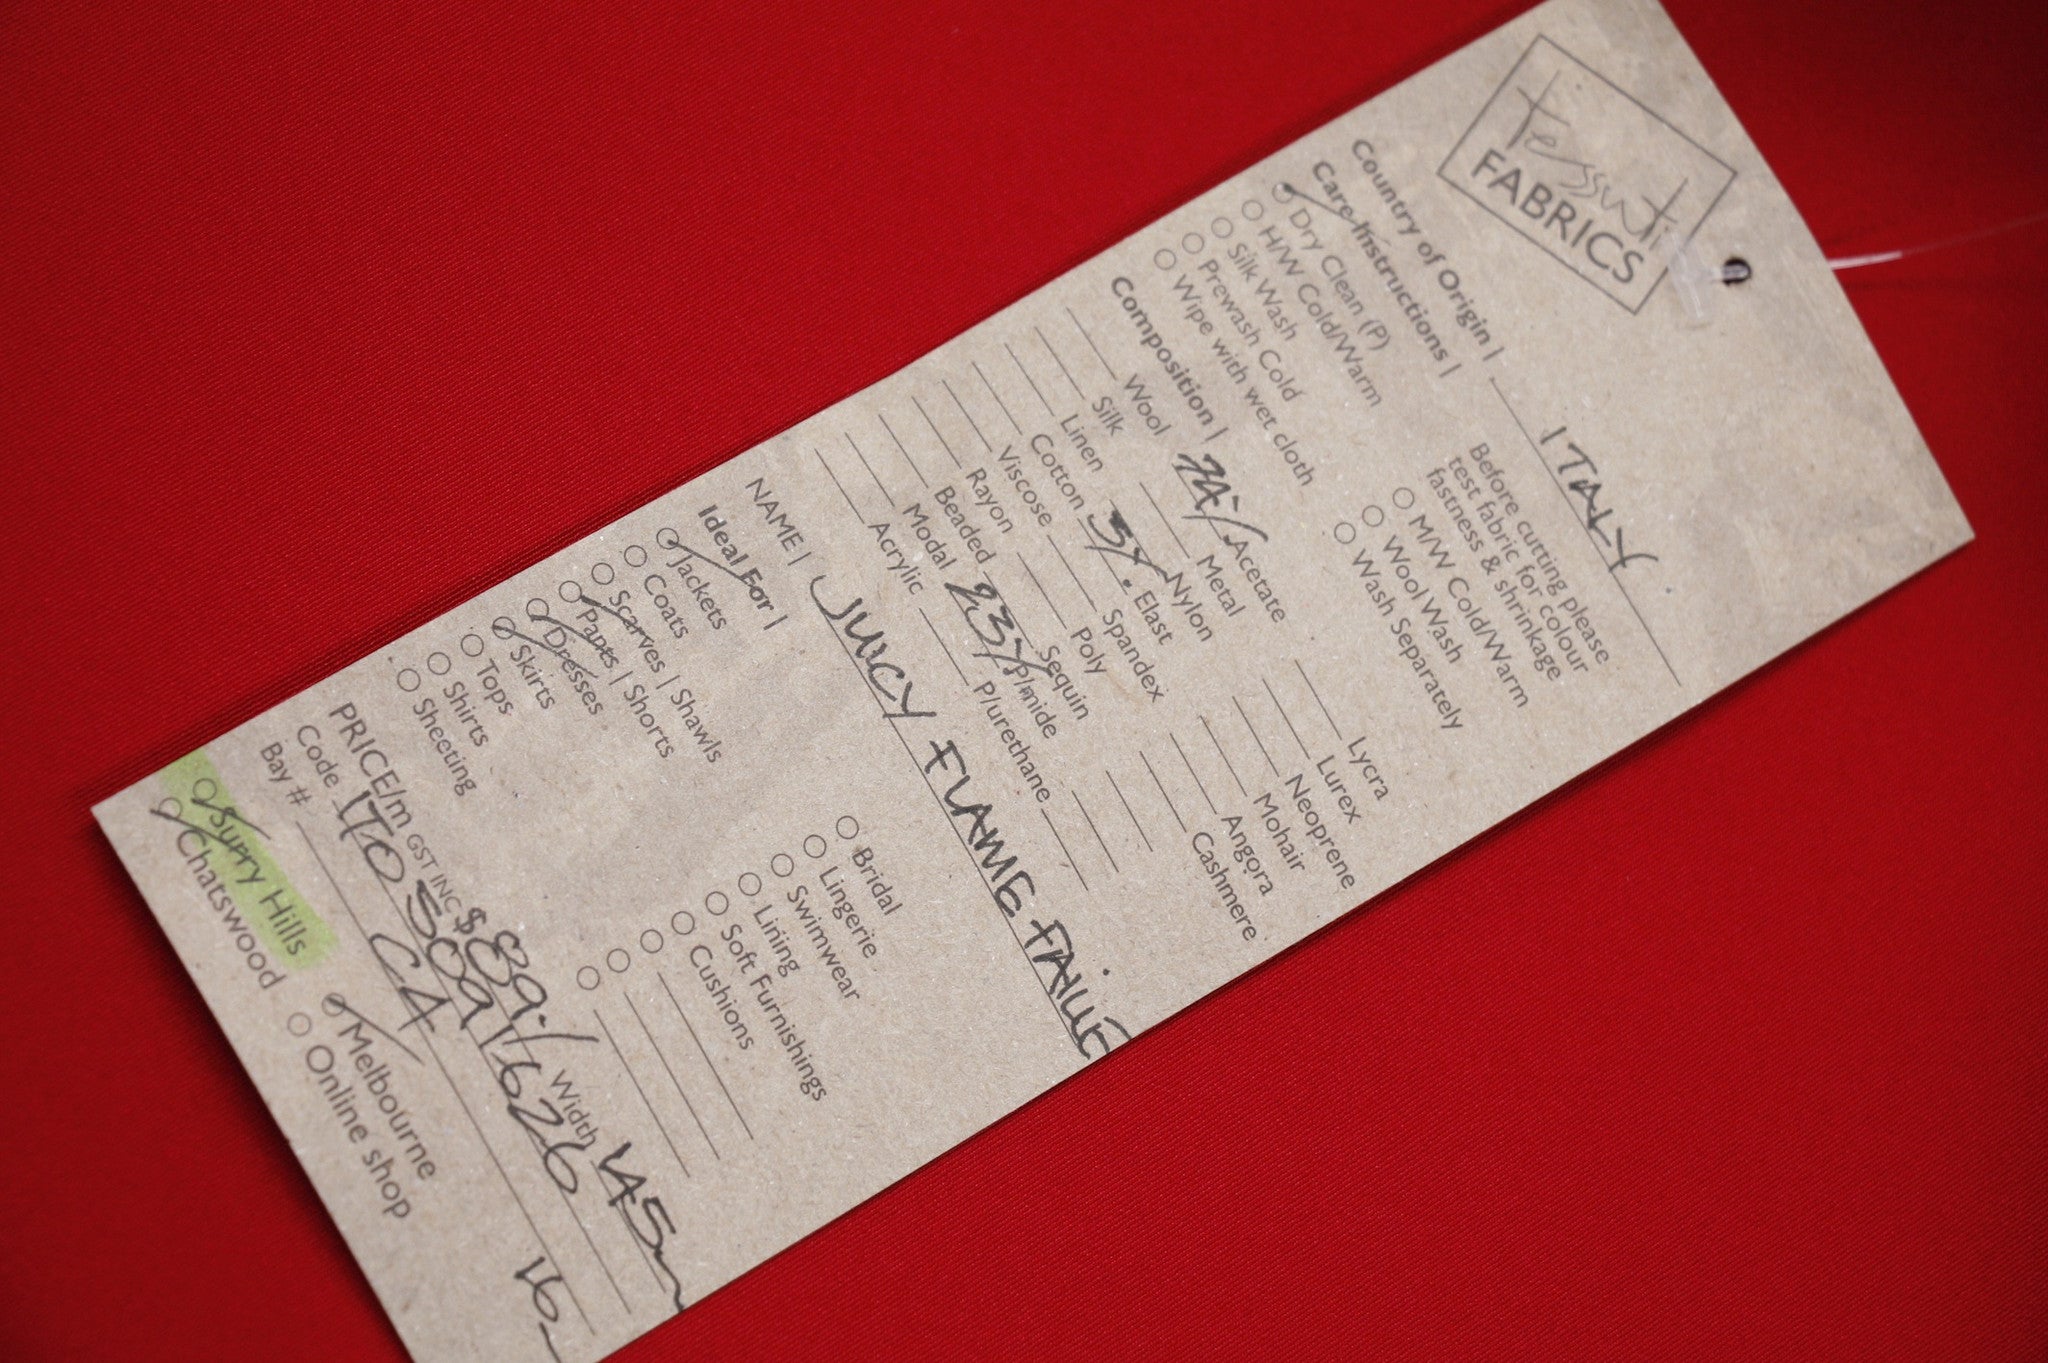 tessuti
FABRICS
Country of Origin | ITALY
Care Instructions |
Dry Clean (P)
H/W Cold/Warm
Silk Wash
Prewash Cold
Wipe with wet cloth
Before cutting please
test fabric for colour
fastness & shrinkage
M/W Cold/Warm
Wool Wash
Wash Separately
Composition |
Wool 74% Acetate Lycra
Silk Metal Lurex
Linen Nylon Neoprene
Cotton 3% Elast Mohair
Viscose Spandex Angora
Rayon Poly Cashmere
Beaded Sequin
Modal 23% P/mide
Acrylic P/urethane
NAME | JUICY FLAME FAILLE
Ideal For |
Jackets
Coats
Scarves | Shawls
Pants | Shorts
Dresses
Skirts
Tops
Shirts
Sheeting
Bridal
Lingerie
Swimwear
Lining
Soft Furnishings
Cushions
PRICE/m GST INC $89./ Width 1.45m
Code ITO 5091626
Bay # CA 16
Surry Hills Melbourne
Chatswood Online shop